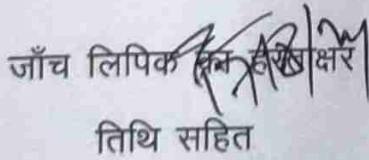 जाँच लिपिक का हस्ताक्षर
तिथि सहित